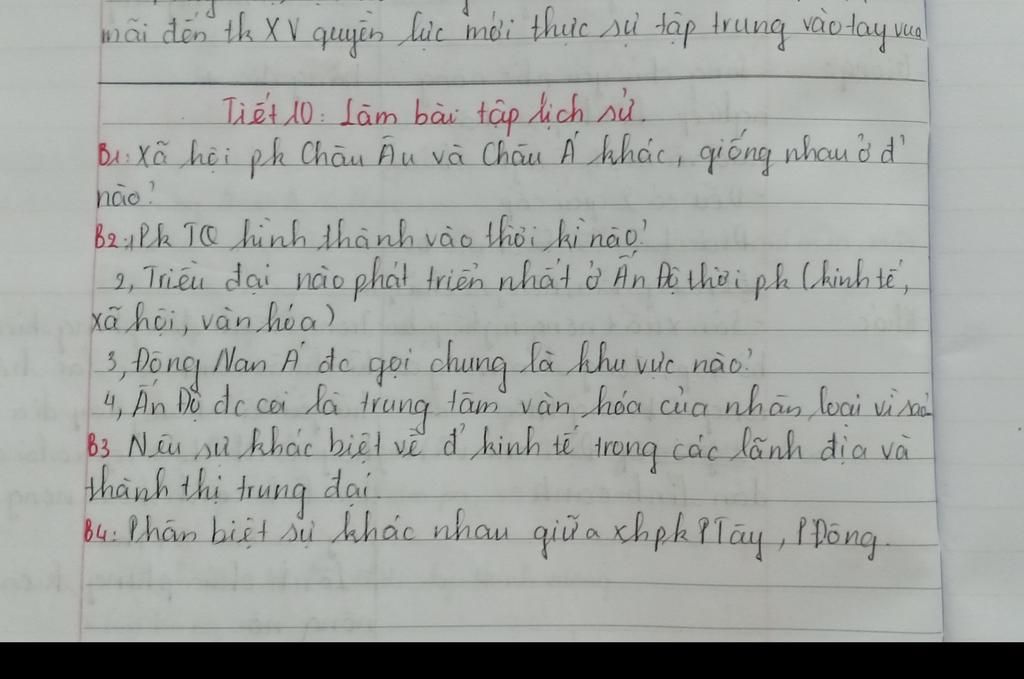 mãi đến tk XV quyền lực mới thực sự tập trung vào tay vua
Tiết 10: Làm bài tập lịch sử.
B1: Xã hội pk Châu Âu và Châu Á khác, giống nhau ở đ'
nào?
B2: 1, Pk TQ hình thành vào thời kì nào?
2, Triều đại nào phát triển nhất ở Ấn Độ thời pk (kinh tế,
xã hội, văn hóa)
3, Đông Nan Á đc gọi chung là khu vực nào?
4, Ấn Độ đc coi là trung tâm văn hóa của nhân loại vì sao
B3 Nêu sự khác biệt về đ' kinh tế trong các lãnh địa và
thành thị trung đại.
B4: Phân biệt sự khác nhau giữa xhpk PTây, PĐông.